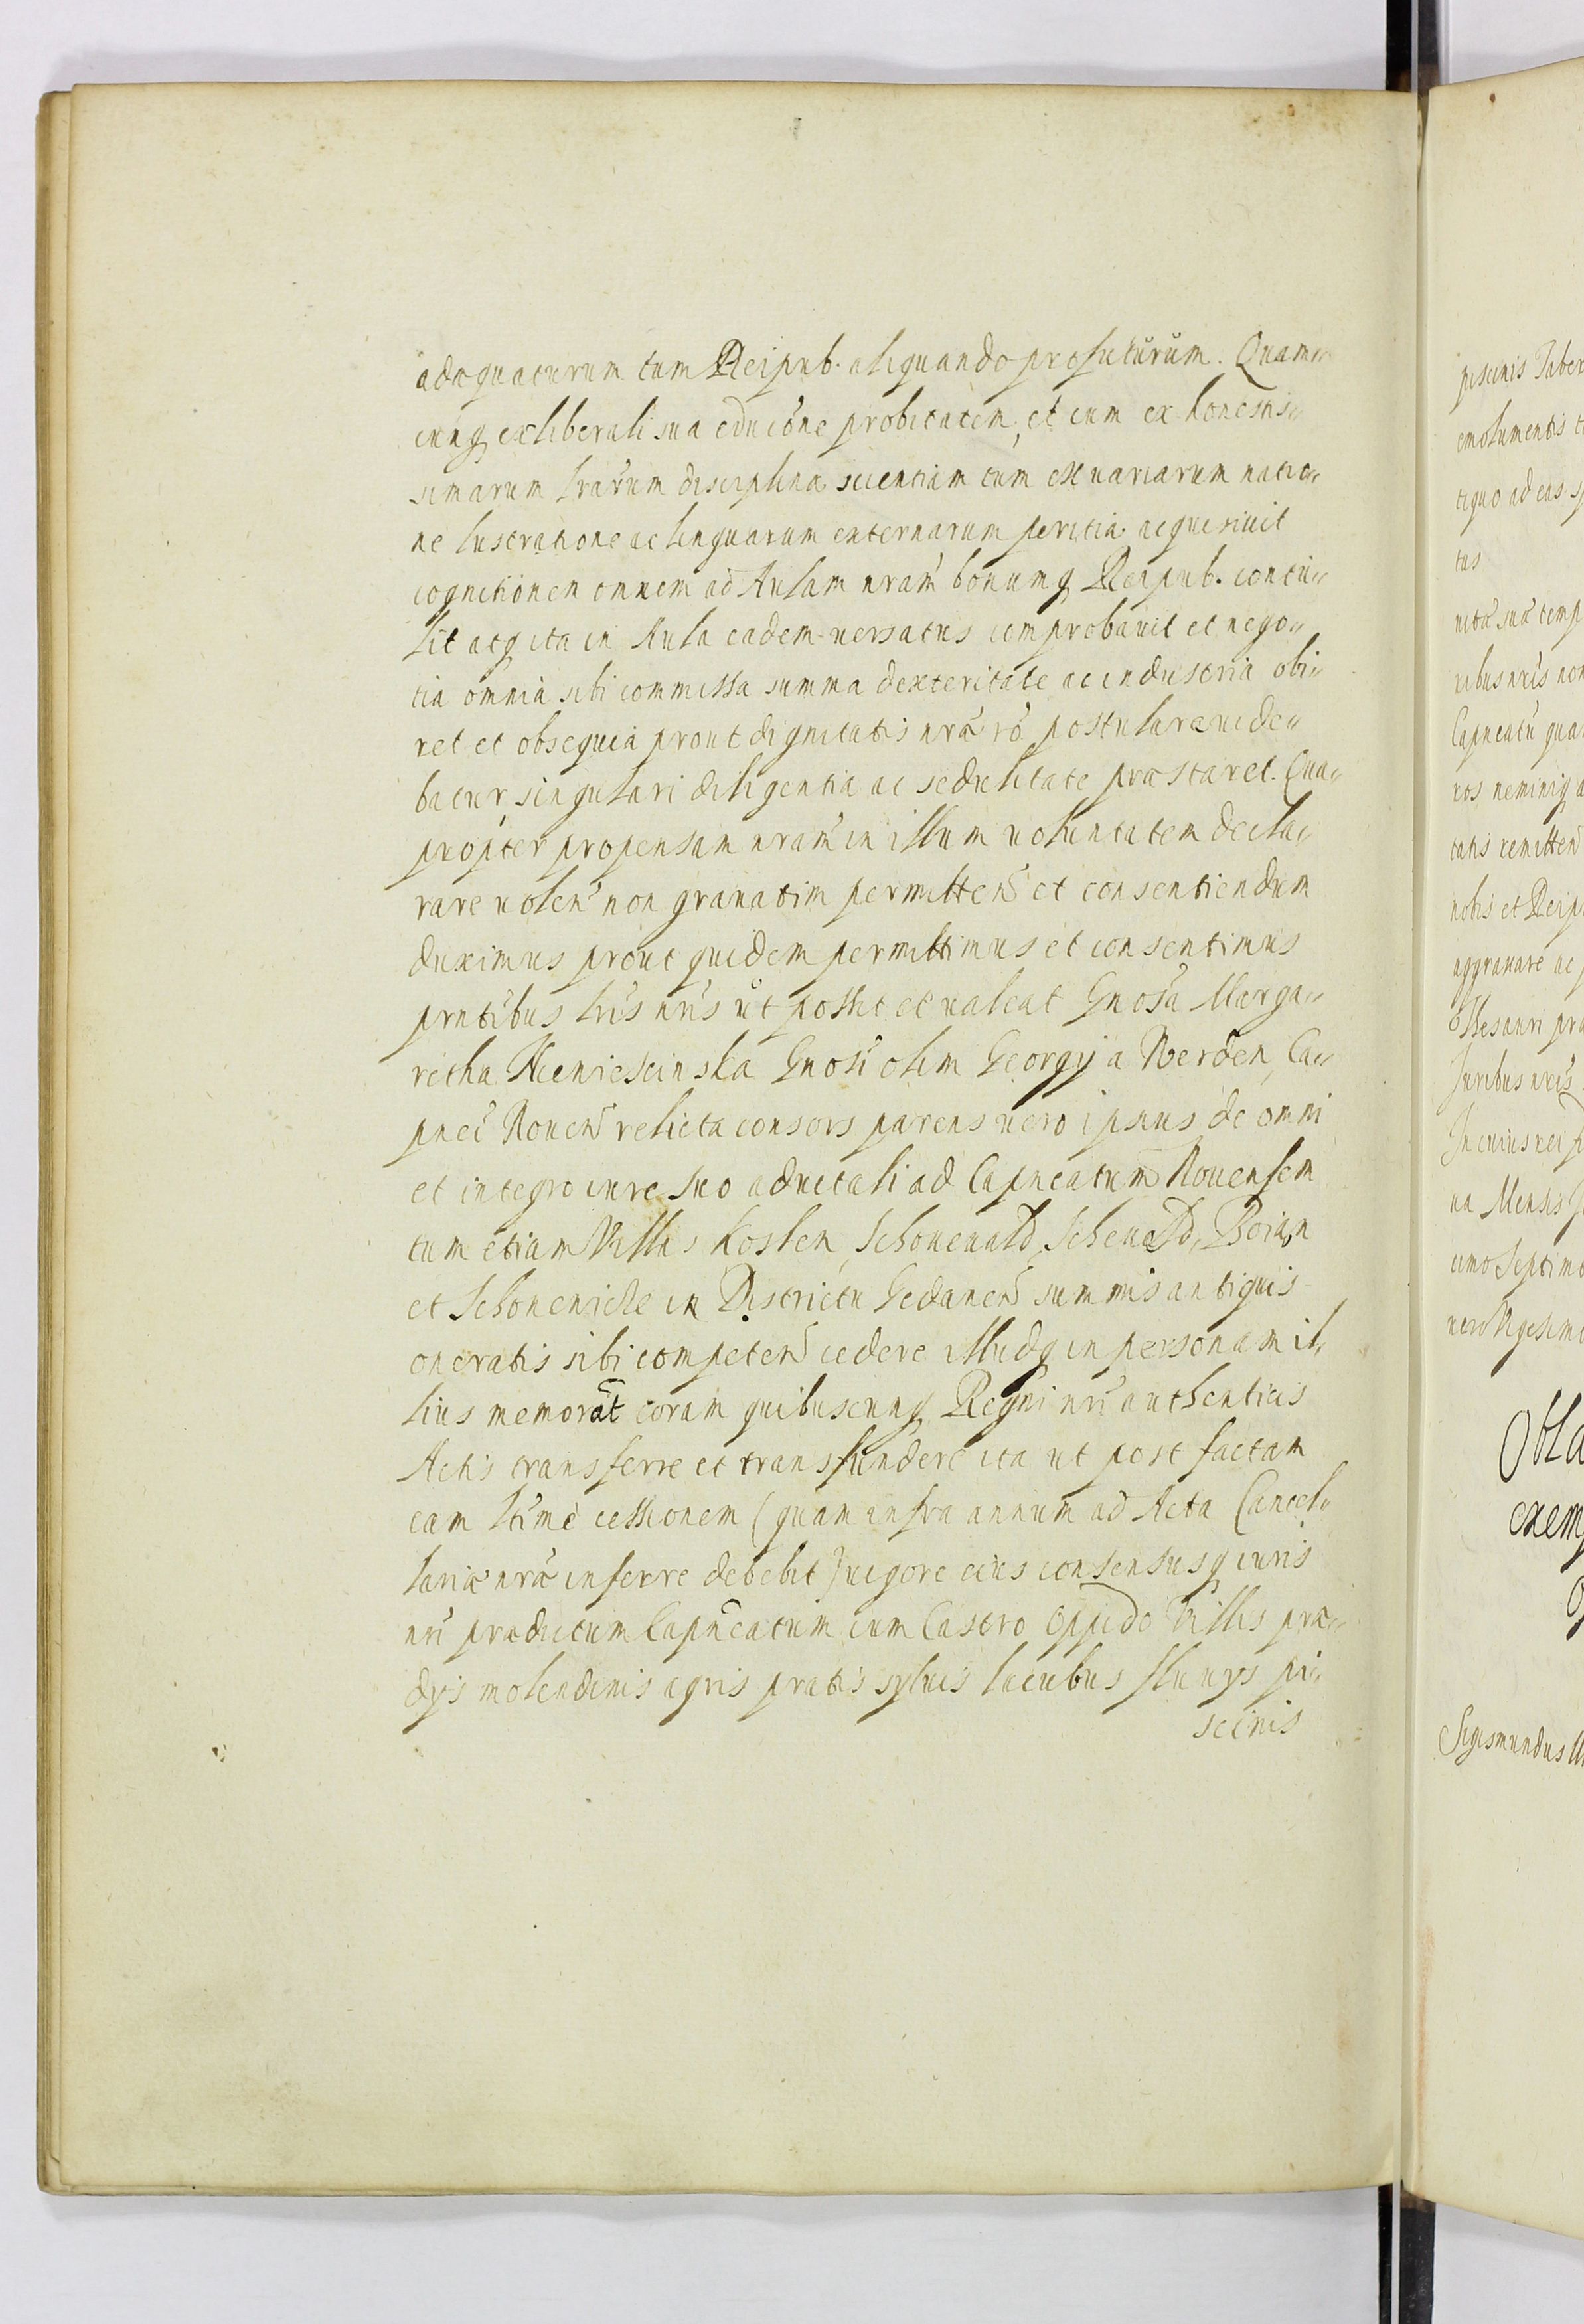 adæquaturum tum Reipub. aliquando profuturum. Quam
cunq ex liberali sua educõne probitatem, et cum ex honestis„
simarum lrarum disciplina scientiam tum ex uariarum natio„
ne lustratione ac linguarum externarum peritia acquisiuit
cognitionem omnem ad Aulam nram bonumq Reipub. contu„
lit atq ita in Aula eadem uersatus comprobauit et nego„
tia omnia sibi commissa summa dexteritate ac industria obi„
ret et obsequia prout dignitatis nræ rõ postulare uide„
batur, singulari diligentia ac sedulitate præstaret. Qua„
propter propensam nram in illum uoluntatem decla„
rare uolen non grauatim permitten et consentiendum
duximus prout quidem permittimus et consentimus
prntibus lris nris ut possit et ualeat Gnosa Marga„
retha Wieniescinska Gnosi olim Georgij a Werden, Ca„
pnei Nouen relicta consors parens uero ipsius de omni
et integro iure suo aduitali ad Capneatum Nouensem
tum etiam Villas Koslen, Schonenald, Schenald, Boian
et Schonenicle in Districtu Gedanen summis antiquis
oneratis sibi competen cedere illudq in personam il„
lius memorat coram quibuscunq Regni nri authenticis
Actis transferre et transfundere ita ut post factam
eam ltime cessionem (quam infra annum ad Acta Cancel„
lariæ nræ inferre debebit) uigore eius consensusq iuris
nri prædictum Capneatum cum Castro oppido Villis præ„
dijs molendinis agris pratis syluis lacubus fluuijs pi„
scinis
piscinis Taber
emolumentis
tiquo ad eas
tus
uita sua temp
ribus nris non
Capneatu qua
nos neminiq a
tatis remitten
nobis et Reip
aggrauare ac
Thesauri pra
Juribus nris
In cuius rei
na Mensis
cimo Septimo
uero Vigesimo
Obla
exem
Sigismundus